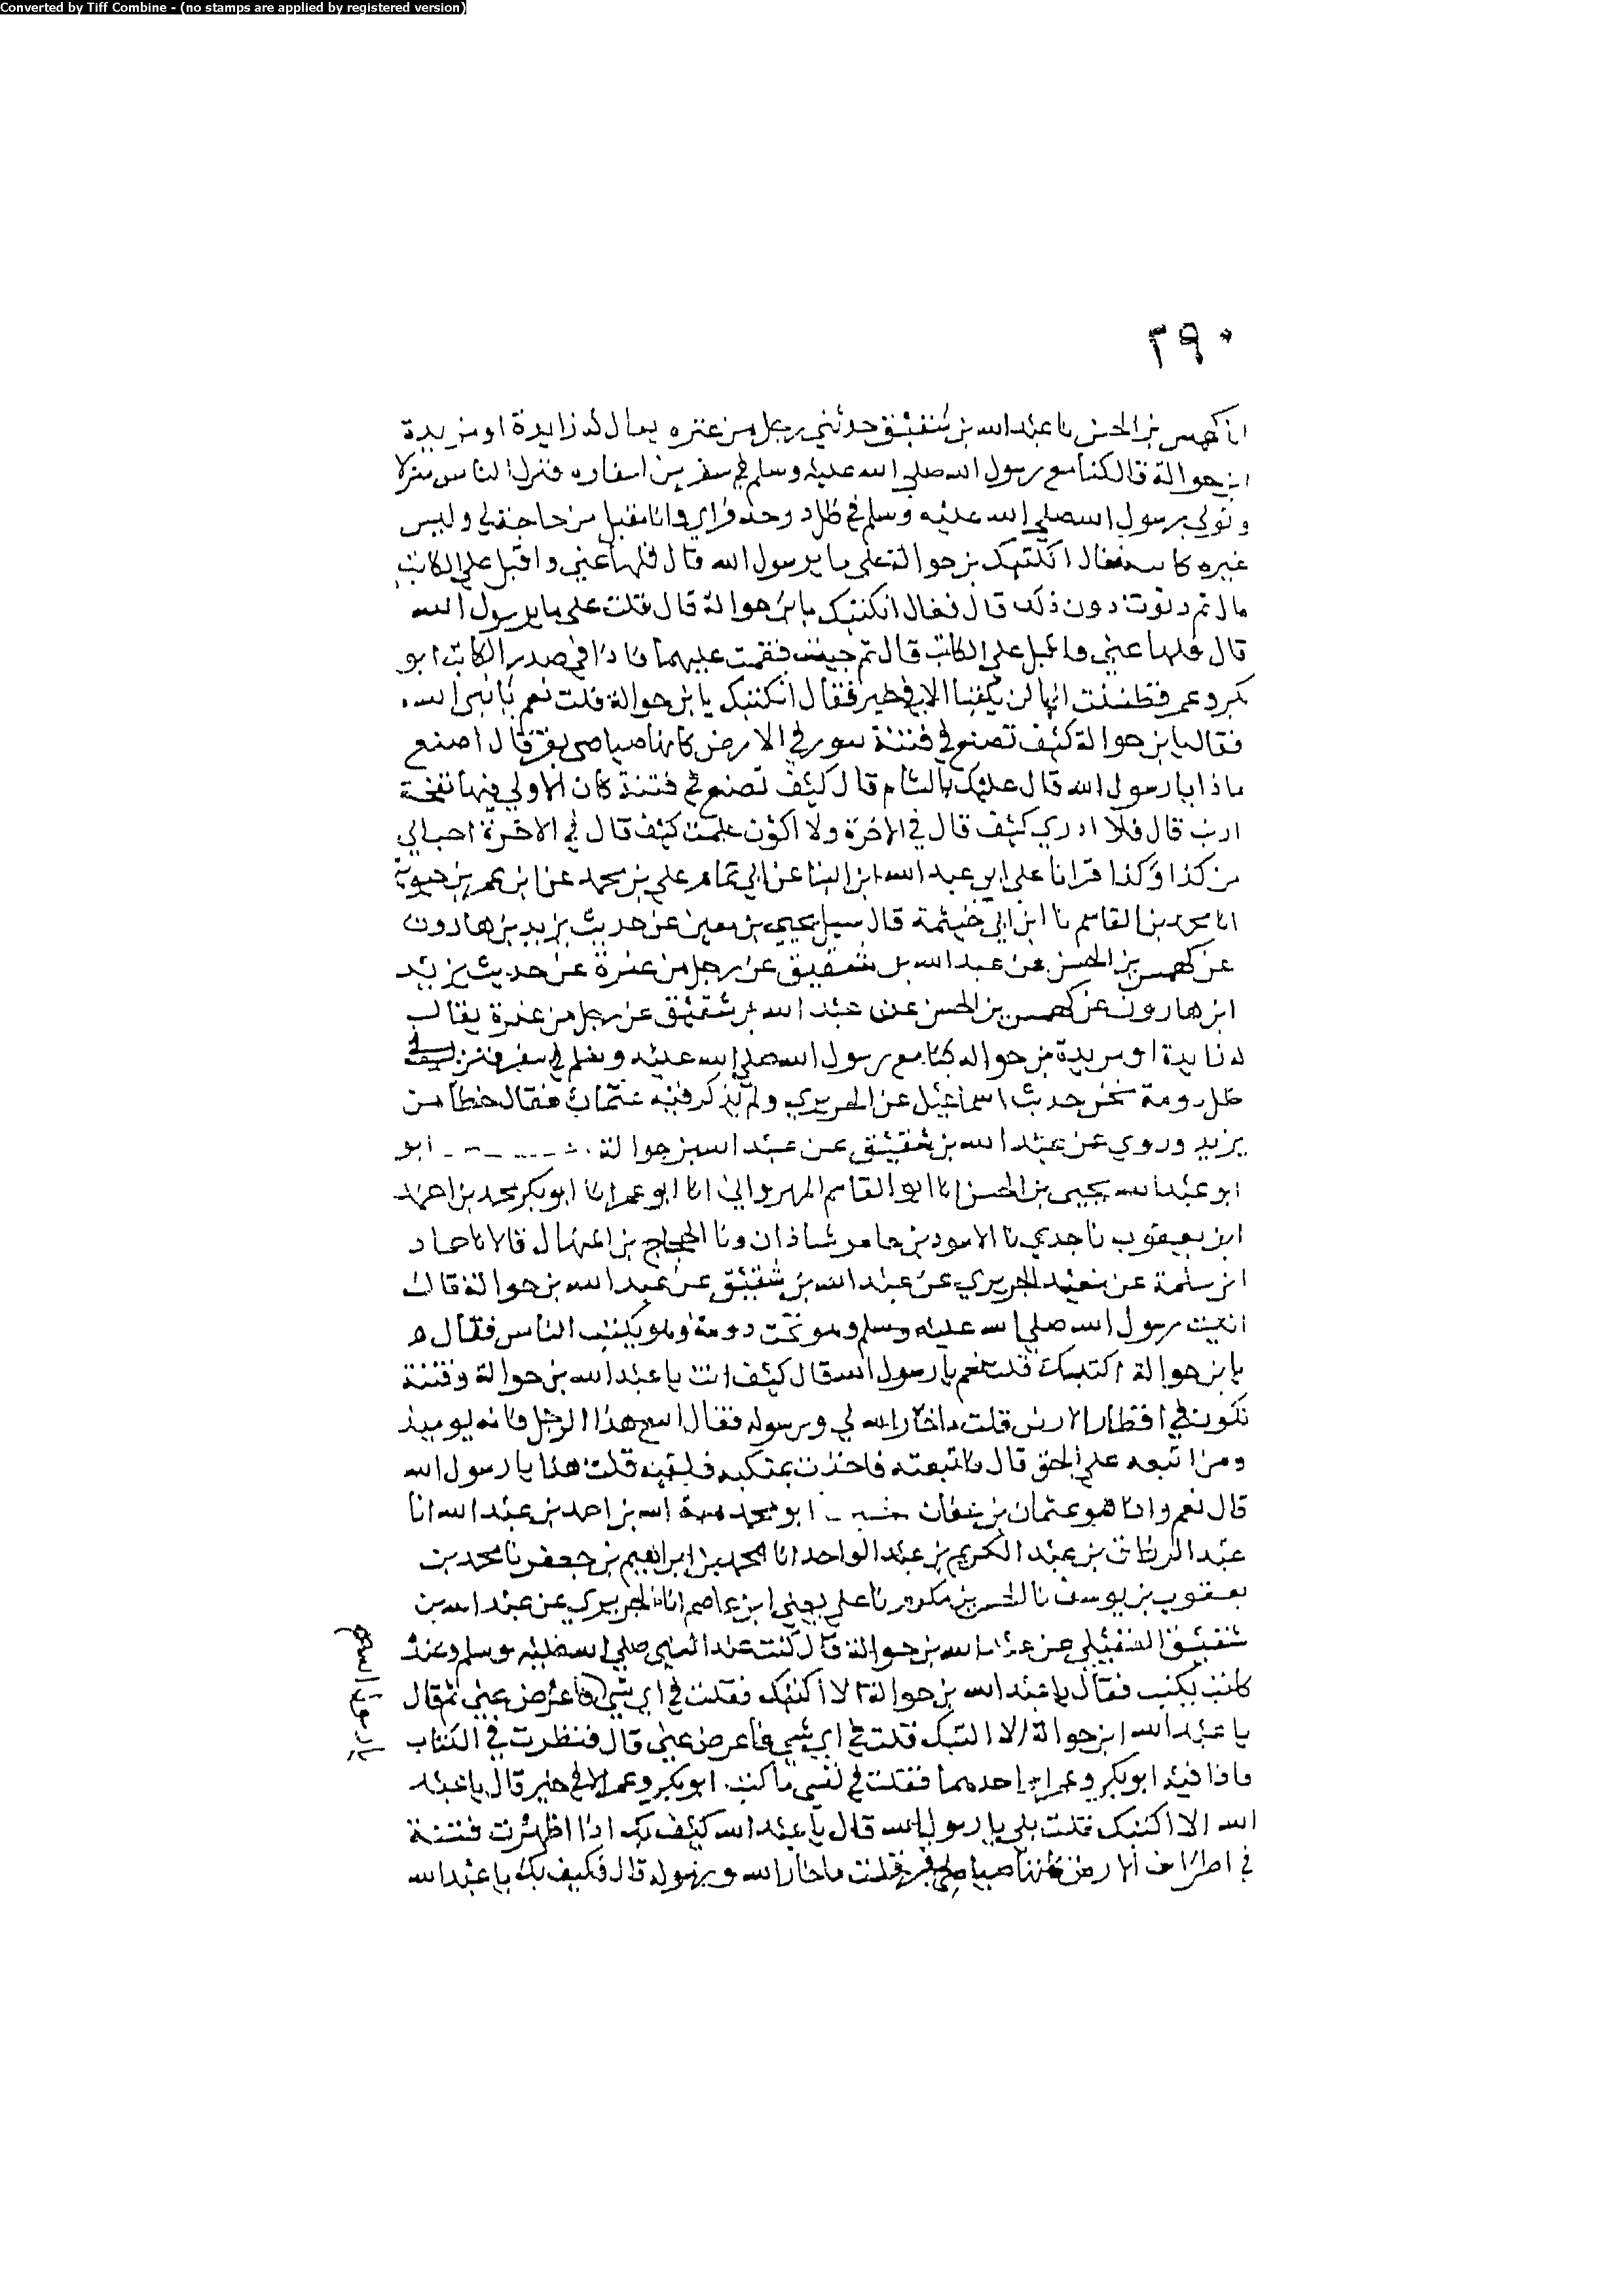 Converted by Tiff Combine - (no stamps are applied by registered version)
٢٩٠
انا كهمس بن الحسن نا عبد الله بن شقيق حدثني رجل من عنزه يقال له زايدة او مزيدة
ابن حوالة قال كنا مع رسول الله صلي الله عليه وسلم في سفر من اسفاره فنزل الناس منزلا
ونزل رسول الله صلي الله عليه وسلم في ظل دوحة فراي وانا مقبل من حاجة لي وليس
غيره كاتبه فقال انكتبك بن حوالة علي ما يرسول الله قال فلها عني واقبل علي الكاتب
قال ثم دنوت دون ذلك قال فقال انكتبك يا بن حوالة قال قلت علي ما يرسول الله
قال فلها عني واقبل علي الكاتب قال ثم جيت فقمت عليهما فاذا في صدر الكاتب ابو
بكر وعمر فظننت انهما لن يكتبا الا في خير فقال انكتبك يا بن حوالة قلت نعم يا نبي الله
فقال يا بن حوالة كيف تصنع في فتنة تثور في الارض كانها صياصي بقر قال اصنع
ماذا يا رسول الله قال عليك بالشام قال كيف تصنع في فتنة كان الاولي فيها نفخة
ارنب قال فلا ادري كيف قال في الاخرة ولا اكون علمت كيف قال في الاخرة احب الي
من كذا وكذا قرانا علي ابي عبد الله ابن البنا عن ابي تمام علي بن محمد عن ابن عمر بن حيوية
انا محمد بن القاسم نا ابن ابي خيثمة قال سيل يحيي بن معين عن حديث يزيد بن هارون
عن كهمس بن الحسن عن عبد الله بن شقيق عن رجل من عنزة عن حديث يزيد
ابن هارون عن كهمس بن الحسن عن عبد الله بن شقيق عن رجل من عنزة يقال
له زايدة او مزيدة بن حواله كنا مع رسول الله صلي الله عليه وسلم في سفر فنزل في
ظل دومة نحو حديث اسماعيل عن الجريري ولم يذكر فيه عثمان فقال خطا من
يزيد وروي عن عبد الله بن شقيق عن عبد الله بن حوالة ابو
ابو عبد الله يحيي بن الحسن انا ابو القاسم المهرواني انا ابو عمر انا ابو بكر محمد بن احمد
ابن يعيقوب نا جدي نا الاسود بن عامر شاذان ونا الحجاج بن المنهال قالا نا حماد
ابن سلمة عن سعيد الجريري عن عبد الله بن شقيق عن عبد الله بن حوالة قال
اتيت رسول الله صلي الله عليه وسلم وهو تحت دومة وهو يكتب الناس فقال
يا بن حوالة اكتبك قلت نعم يا رسول الله قال كيف انت يا عبد الله بن حوالة وفتنة
تكون في اقطار الارض قلت ما خار الله لي ورسوله فقال اتبع هذا الرجل فانه يوميذ
ومن اتبعه علي الحق قال فاتبعته فاخذت بمنكبه فلقيته قلت هذا يا رسول الله
قال نعم واذا هو عثمان بن عفان ابو محمد هبة الله بن احمد بن عبد الله انا
عبد الرزاق بن عبد الكريم بن عبد الواحد انا محمد بن ابراهيم بن جعفر نا محمد بن
يعقوب بن يوسف نا الحسن بن مكرم نا علي يعني ابن عاصم انا الجريري عن عبد الله بن
شقيق العقيلي عن عبد الله بن حوالة قال كنت عند النبي صلي الله عليه وسلم وعنده
كاتب يكتب فقال يا عبد الله بن حوالة الا اكتبك فقلت في اي شي فاعرض عني ثم قال
يا عبد الله ابن حوالة الا اكتبك قلت في اي شي فاعرض عني قال فنظرت في الكتاب
فاذا فيه ابو بكر وعمر او احدهما فقلت في نفسي ما كتب ابو بكر وعمر الا في خير قال يا عبد
الله الا اكتبك قلت بلي يا رسول الله قال يا عبد الله كيف بك اذا اظهرت فتنة
في اطراف الارض كانها صياصي بقر قلت ما خار الله ورسوله قال فكيف بك يا عبد الله